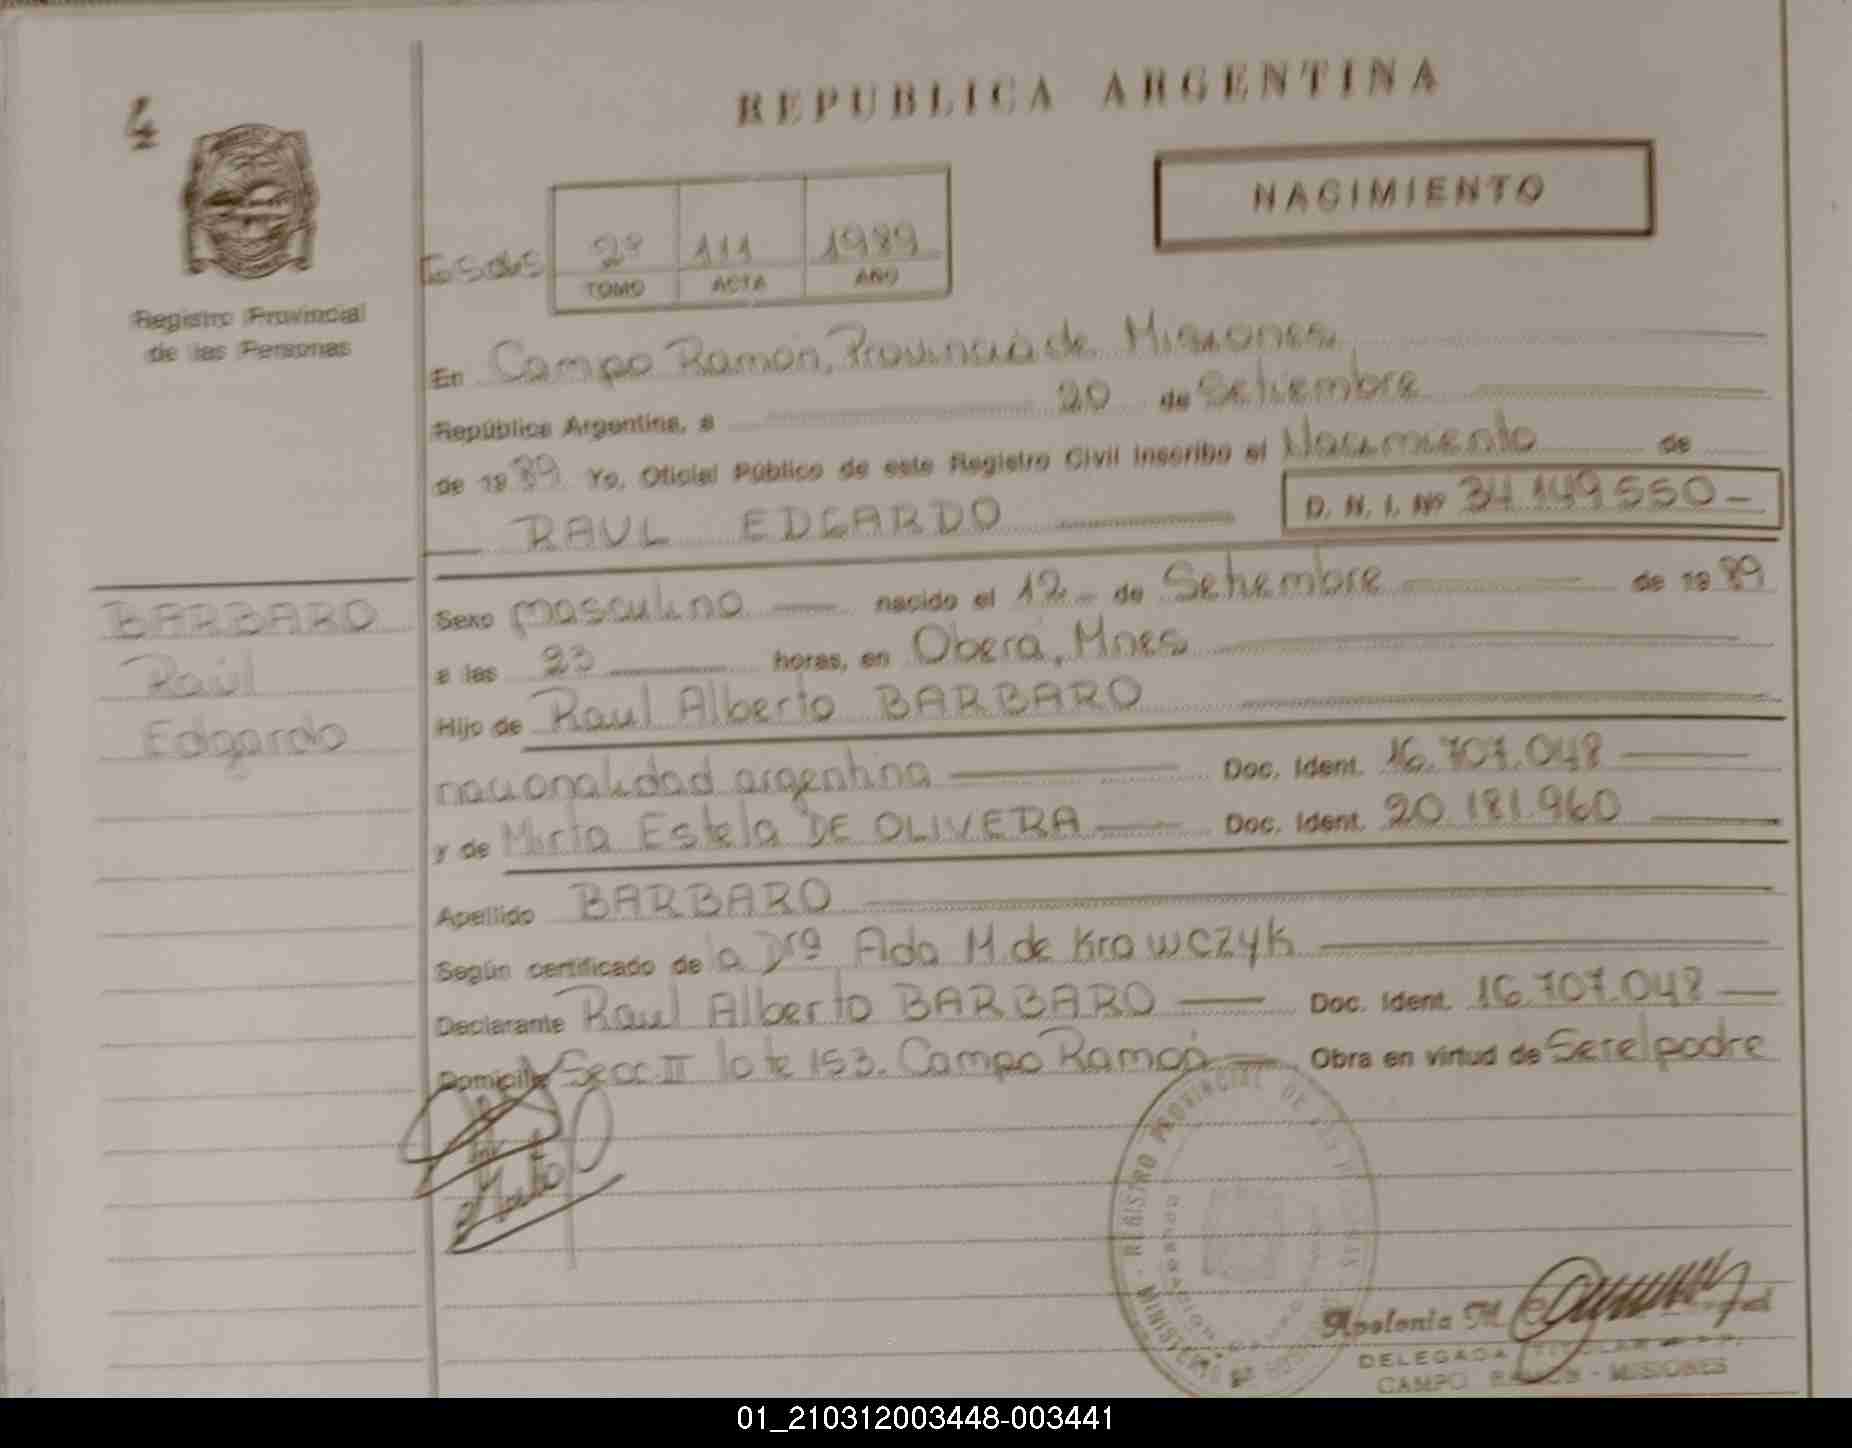 REPUBLICA ARGENTINA
NACIMIENTO
Registro Provincial
de las Personas
2º 111 1989
TOMO ACTA AÑO
En Campo Ramón, Provincia de Misiones
República Argentina, a 20 de Setiembre
de 1989 Yo, Oficial Público de este Registro Civil inscribo el Nacimiento de
RAUL EDGARDO D. N. I. Nº 34.149.550-
BARBARO
Raúl
Edgardo
Sexo masculino nacido el 12 de Setiembre de 1989
a las 23 horas, en Oberá, Mnes
Hijo de Raul Alberto BARBARO
nacionalidad argentina Doc. Ident. 16.707.048
y de Mirta Estela DE OLIVERA Doc. Ident. 20.181.960
Apellido BARBARO
Según certificado de la Drª Ada M. de Krawczyk
Declarante Raul Alberto BARBARO Doc. Ident. 16.707.048
Domicilio Secc. II lote 153. Campo Ramón Obra en virtud de Ser el padre
REGISTRO PROVINCIAL DE LAS PERSONAS
Apolonia M.
DELEGADA TITULAR
CAMPO RAMON - MISIONES
01_210312003448-003441